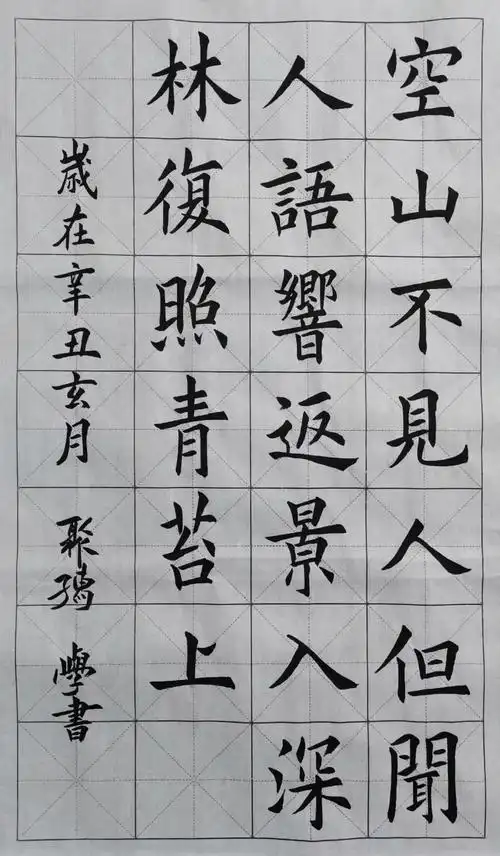 空山不見人但聞
人語響返景入深
林復照青苔上
歲在辛丑玄月 聚鴻 學書